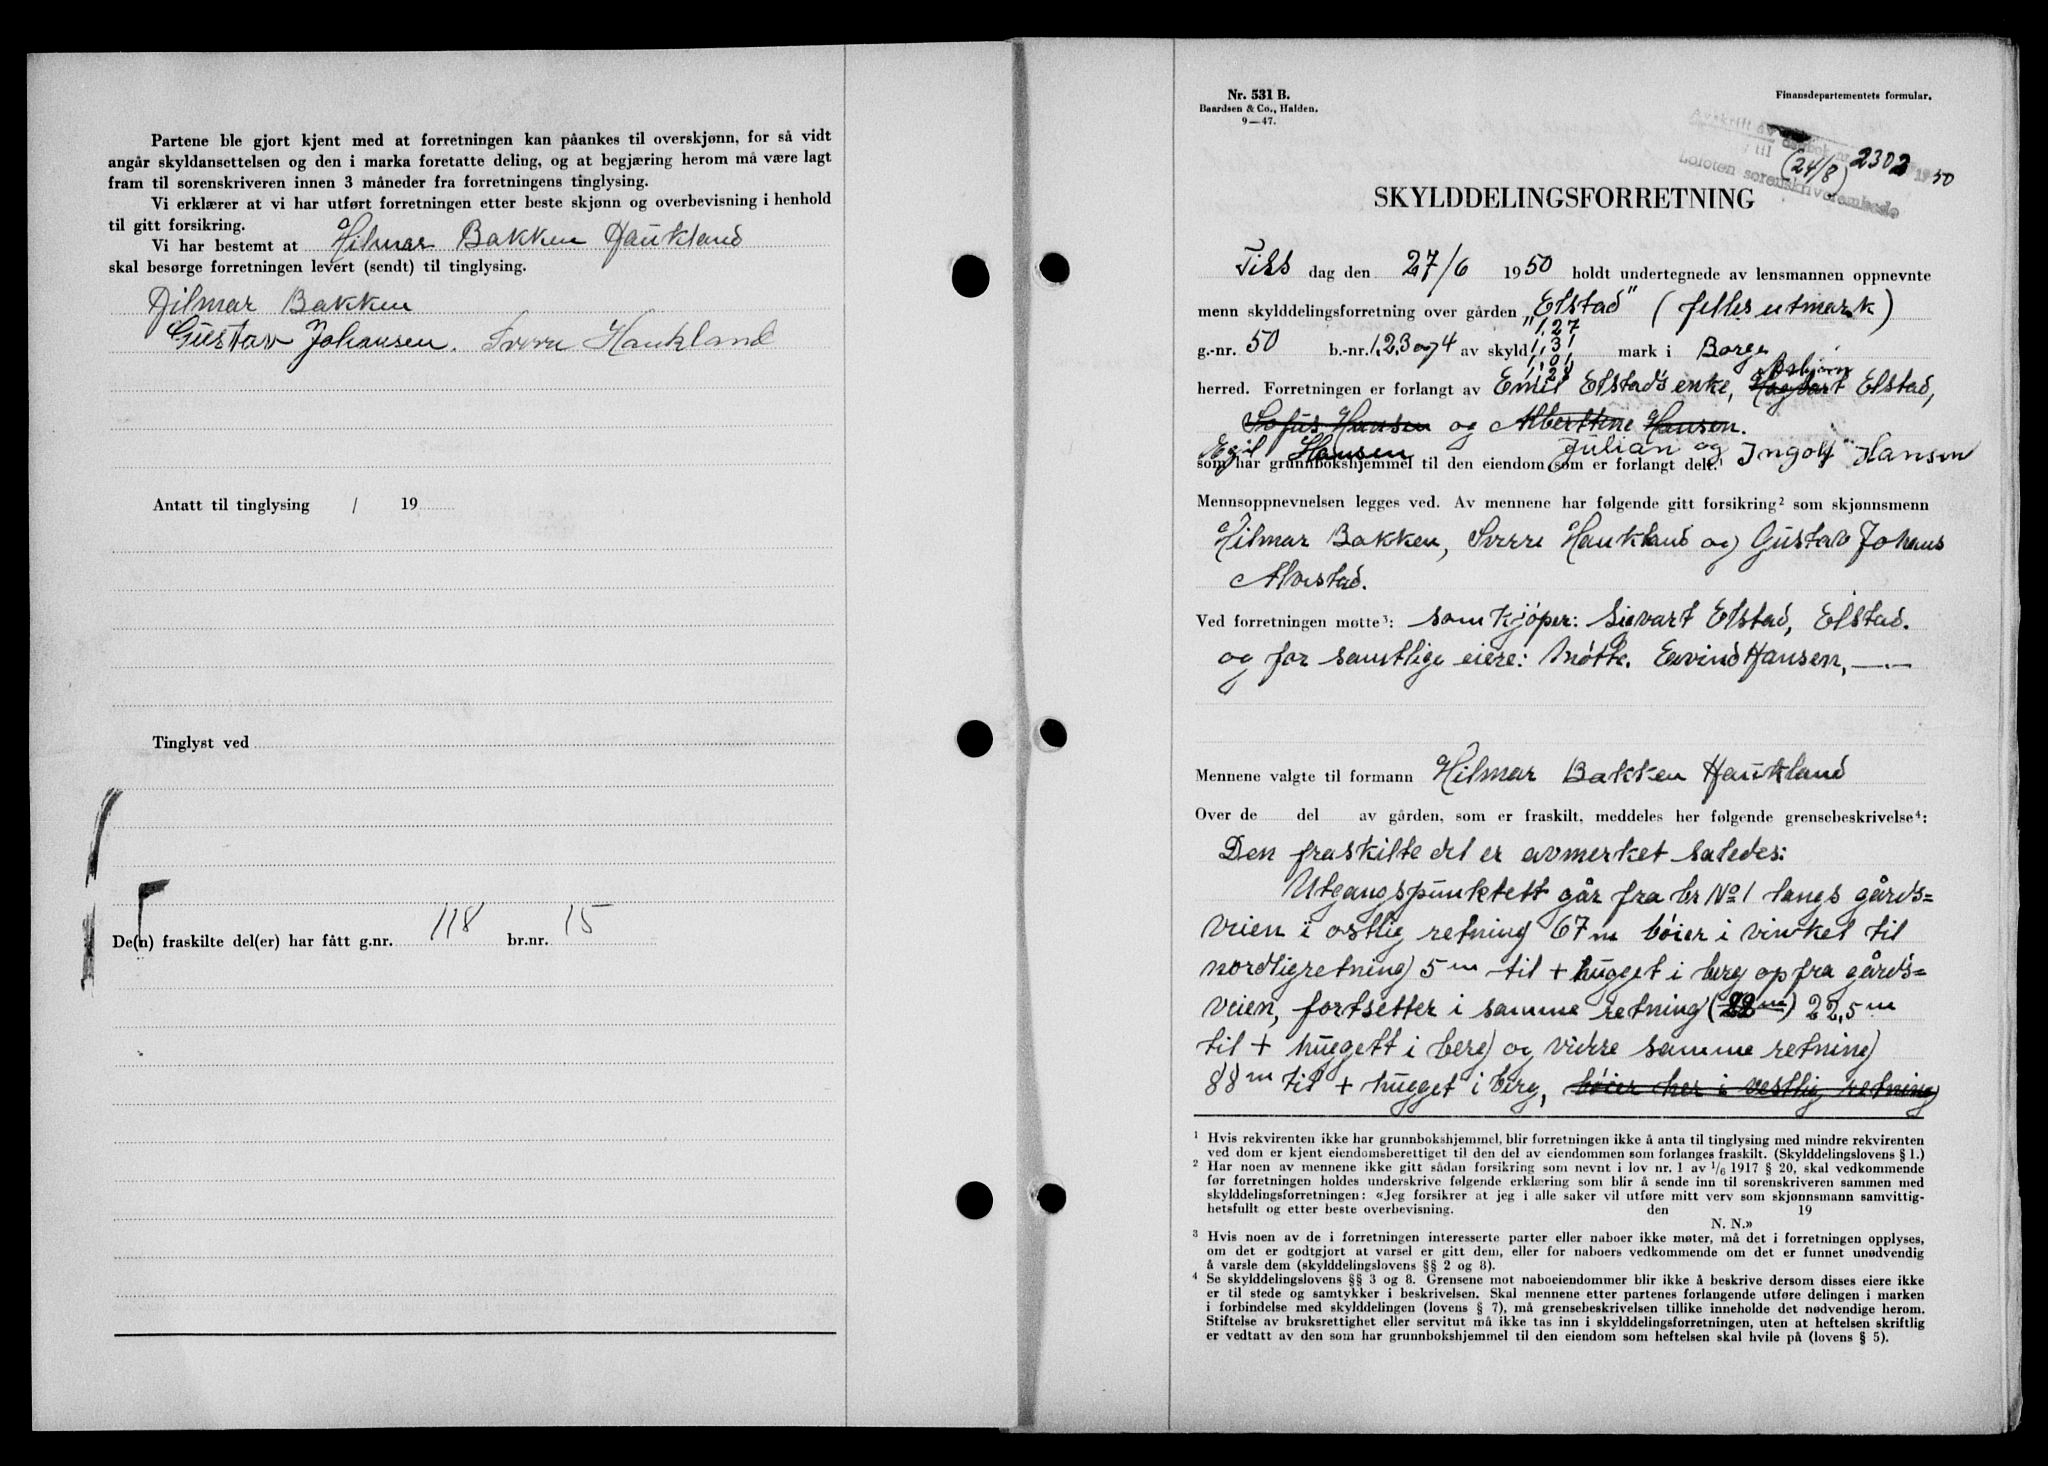 Partene ble gjort kjent med at forretningen kan påankes til overskjønn, for så vidt
angår skyldansettelsen og den i marka foretatte deling, og at begjæring herom må være lagt
fram til sorenskriveren innen 3 måneder fra forretningens tinglysing.
Vi erklærer at vi har utført forretningen etter beste skjønn og overbevisning i henhold
til gitt forsikring.
Vi har bestemt at Hilmar Bakken Haukland
skal besørge forretningen levert (sendt) til tinglysing.
Hilmar Bakken
Gustav Johansen. Sverre Haukland
Antatt til tinglysing / 19
Tinglyst ved
De(n) fraskilte del(er) har fått g.nr. 118 br.nr. 15
Nr. 531 B.
Baardsen & Co., Halden.
9—47.
Finansdepartementets formular.
Avskrift av dagbok nr. 2302 1950
til (24/8)
Lofoten sorenskriverembede
SKYLDDELINGSFORRETNING
Tirs dag den 27/6 1950 holdt undertegnede av lensmannen oppnevnte
menn skylddelingsforretning over gården "Elstad" (felles utmark)
1,27
g.-nr. 50 b.-nr. 1,2,3 og 4 av skyld 1,31 mark i Borge
1,01
1,28 Asbjørn
herred. Forretningen er forlangt av Emil Elstads enke, Hagbart Elstad,
Sofus Hansen og Alberttine Hansen.
Egil Hansen Julian og Ingolf Hansen
som har grunnbokshjemmel til den eiendom som er forlangt delt.¹
Mennsoppnevnelsen legges ved. Av mennene har følgende gitt forsikring² som skjønnsmenn
Hilmar Bakken, Sverre Haukland og Gustav Johans
Alvestad.
Ved forretningen møtte³: som kjøper: Sigvart Elstad, Elstad.
og for samtlige eiere: møtte. Eavind Hansen, —"—
Mennene valgte til formann Hilmar Bakken Haukland
Over de del av gården, som er fraskilt, meddeles her følgende grensebeskrivelse⁴:
Den fraskilte del er avmerket saledes:
Utgangspunktett går fra br No 1 langs gårds=
veien i ostlig retning 67 m bóier i vinkel til
nordlig retning 5 m til + hugget i berg op fra gårds=
veien, fortsetter i samme retning (22 m) 22,5 m
til + huggett i berg og vidre samme retning
88 m til + hugget i berg, bóier her i vestlig retning
¹ Hvis rekvirenten ikke har grunnbokshjemmel, blir forretningen ikke å anta til tinglysing med mindre rekvirenten
ved dom er kjent eiendomsberettiget til den del av eiendommen som forlanges fraskilt. (Skylddelingslovens § 1.)
² Har noen av mennene ikke gitt sådan forsikring som nevnt i lov nr. 1 av 1/6 1917 § 20, skal vedkommende
før forretningen holdes underskrive følgende erklæring som blir å sende inn til sorenskriveren sammen med
skylddelingsforretningen: «Jeg forsikrer at jeg i alle saker vil utføre mitt verv som skjønnsmann samvittig-
hetsfullt og etter beste overbevisning. den 19
N. N.»
³ Hvis noen av de i forretningen interesserte parter eller naboer ikke møter, må det i forretningen opplyses,
om det er godtgjort at varsel er gitt dem, eller for naboers vedkommende om det er funnet unødvendig
å varsle dem (skylddelingslovens §§ 2 og 8).
⁴ Se skylddelingslovens §§ 3 og 8. Grensene mot naboeiendommer blir ikke å beskrive dersom disses eiere ikke
er til stede og samtykker i beskrivelsen. Skal mennene etter partenes forlangende utføre delingen i marken
i forbindelse med skylddelingen (lovens § 7), må grensebeskrivelsen tillike inneholde det nødvendige herom.
Stiftelse av bruksrettighet eller servitut må ikke tas inn i skylddelingsforretningen, uten at heftelsen skriftlig
er vedtatt av den som har grunnbokshjemmel til den eiendom som heftelsen skal hvile på (lovens § 5).